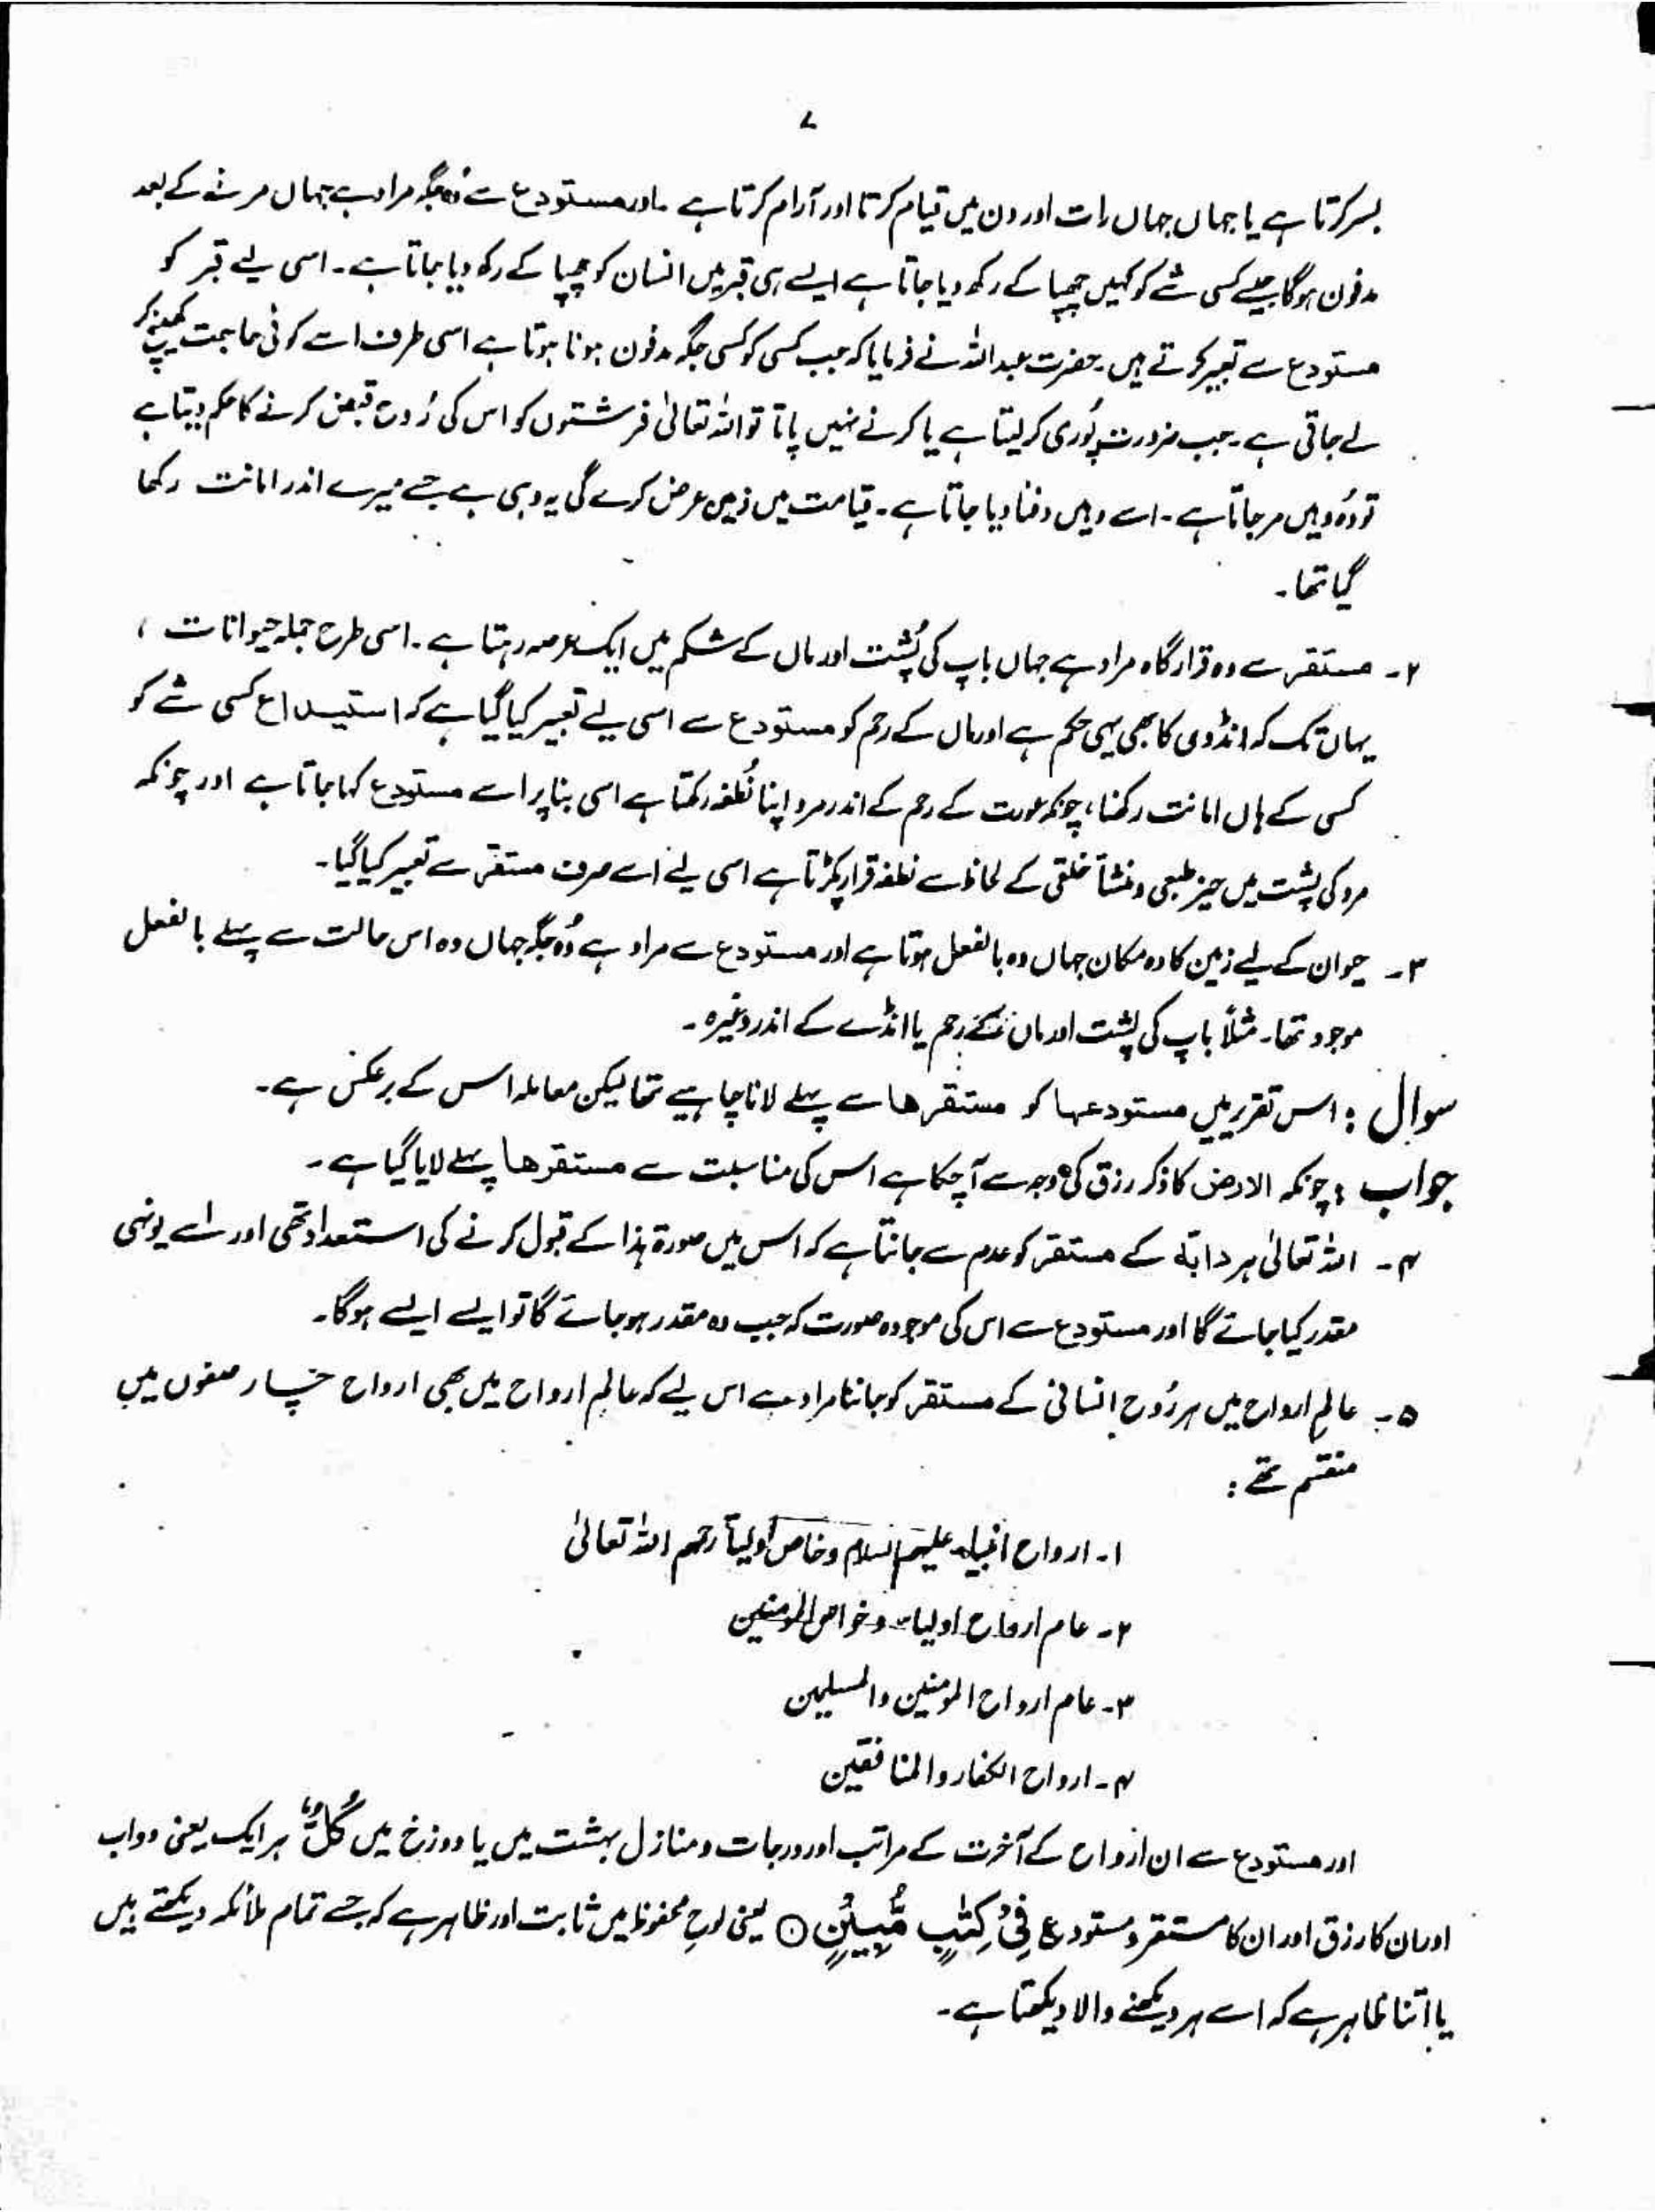 ۷
بسر کرتا ہے یا جہاں جہاں رات اور دن میں قیام کرتا اور آرام کرتا ہے ۔ اور مستودع سے وُہ جگہ مراد ہے جہاں مرنے کے بعد
مدفون ہوگا جیسے کسی شے کو کہیں چھپا کے رکھ دیا جاتا ہے ایسے ہی قبر میں انسان کو چھپا کے رکھ دیا جاتا ہے ۔ اسی لیے قبر کو
مستودع سے تعبیر کرتے ہیں ۔ حضرت عبداللہ نے فرمایا کہ جب کسی کو کسی جگہ مدفون ہونا ہوتا ہے اسی طرف اسے کوئی حاجت کھینچ کر
لے جاتی ہے ۔ جب ضرورت پُوری کر لیتا ہے یا کرنے نہیں پاتا تو اللہ تعالیٰ فرشتوں کو اس کی رُوح قبض کرنے کا حکم دیتا ہے
تو وُہ وہیں مر جاتا ہے ۔ اسے وہیں دفنا دیا جاتا ہے ۔ قیامت میں زمین عرض کرے گی یہ وہی ہے جسے میرے اندر امانت رکھا
گیا تھا ۔
۲ ۔ مستقر سے وہ قرار گاہ مراد ہے جہاں باپ کی پُشت اور ماں کے شکم میں ایک عرصہ رہتا ہے ۔ اسی طرح جملہ حیوانات ،
یہاں تک کہ انڈوں کا بھی یہی حکم ہے اور ماں کے رحم کو مستودع سے اسی لیے تعبیر کیا گیا ہے کہ استیداع کسی شے کو
کسی کے ہاں امانت رکھنا ، چونکہ عورت کے رحم کے اندر مرد اپنا نُطفہ رکھتا ہے اسی بنا پر اسے مستودع کہا جاتا ہے اور چونکہ
مرد کی پشت میں حیز طبعی و منشأ خلقی کے لحاظ سے نطفہ قرار پکڑتا ہے اسی لیے اسے صرف مستقر سے تعبیر کیا گیا ۔
۳ ۔ حیوان کے لیے زمین کا وہ مکان جہاں وہ بالفعل ہوتا ہے اور مستودع سے مراد ہے وُہ جگہ جہاں وہ اس حالت سے پہلے بالفعل
موجود تھا ۔ مثلاً باپ کی پشت اور ماں کے رحم یا انڈے کے اندر وغیرہ ۔
سوال : اس تقریر میں مستودعہا کو مستقرھا سے پہلے لانا چاہیے تھا لیکن معاملہ اس کے برعکس ہے ۔
جواب : چونکہ الارض کا ذکر رزق کی وجہ سے آچکا ہے اس کی مناسبت سے مستقرھا پہلے لایا گیا ہے ۔
۴ ۔ اللہ تعالیٰ ہر دابۃ کے مستقر کو عدم سے جانتا ہے کہ اس میں صورۃ ہذا کے قبول کرنے کی استعداد تھی اور اسے یونہی
مقدر کیا جائے گا اور مستودع سے اس کی موجودہ صورت کہ جب وہ مقدر ہو جائے گا تو ایسے ایسے ہوگا ۔
۵ ۔ عالمِ ارواح میں ہر رُوح انسانی کے مستقر کو جاننا مراد ہے اس لیے کہ عالمِ ارواح میں بھی ارواح چار صفوں میں
منقسم تھے :
۱ ۔ ارواح انبیاء علیہم السلام و خاص اولیأ رحمہم اللہ تعالیٰ
۲ ۔ عام ارواح اولیاء و خواص المومنین
۳ ۔ عام ارواح المومنین والمسلمین
۴ ۔ ارواح الکفار والمنافقین
اور مستودع سے ان ارواح کے آخرت کے مراتب اور درجات و منازل بہشت میں یا دوزخ میں کُلٌّ ہر ایک یعنی دواب
اور ان کا رزق اور ان کا مستقر و مستودع فِیْ کِتٰبٍ مُّبِیْنٍ ۝ یعنی لوحِ محفوظ میں ثابت اور ظاہر ہے کہ جسے تمام ملائکہ دیکھتے ہیں
یا اتنا ظاہر ہے کہ اسے ہر دیکھنے والا دیکھتا ہے ۔